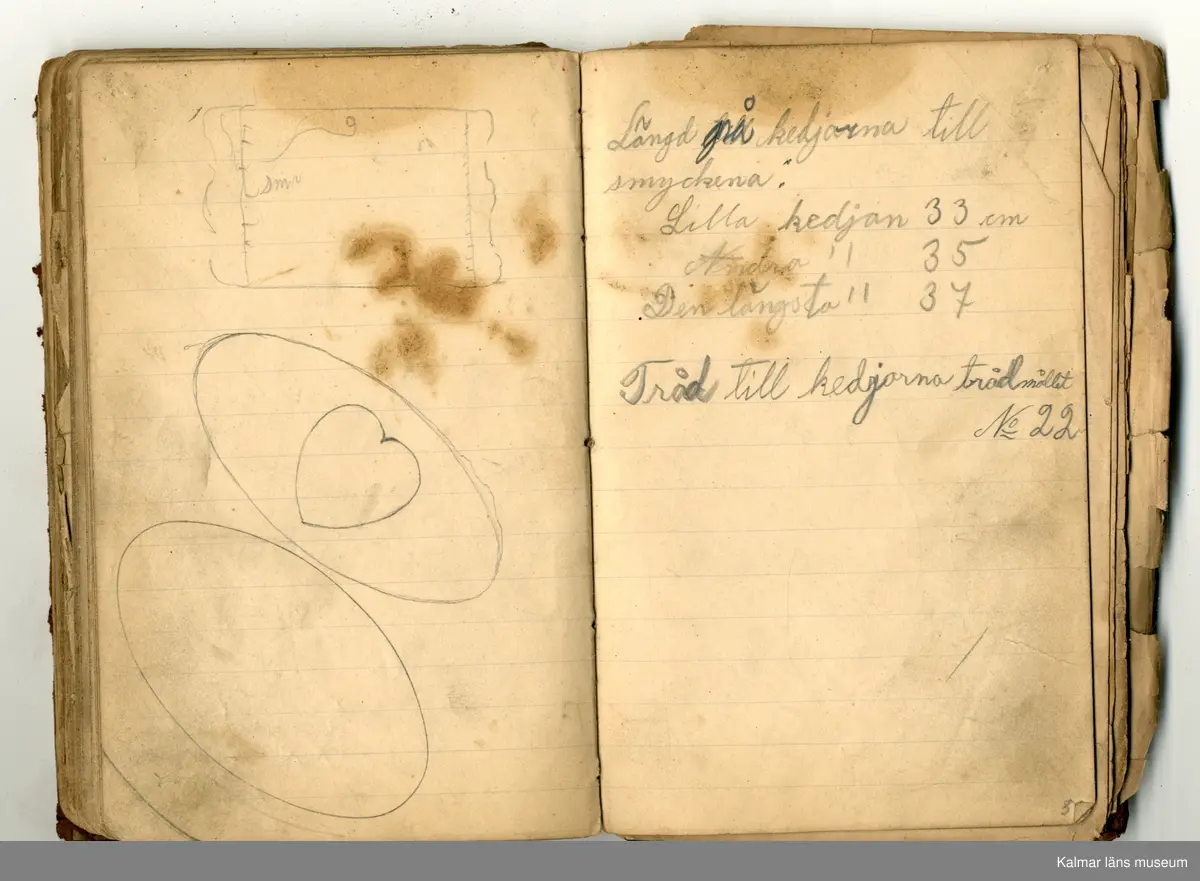 9
sm
Längd på kedjorna till
smyckena.
Lilla kedjan 33 cm
Andra " 35
Den längsta " 37
Tråd till kedjorna trådmållet
No 22
Kalmar läns museum